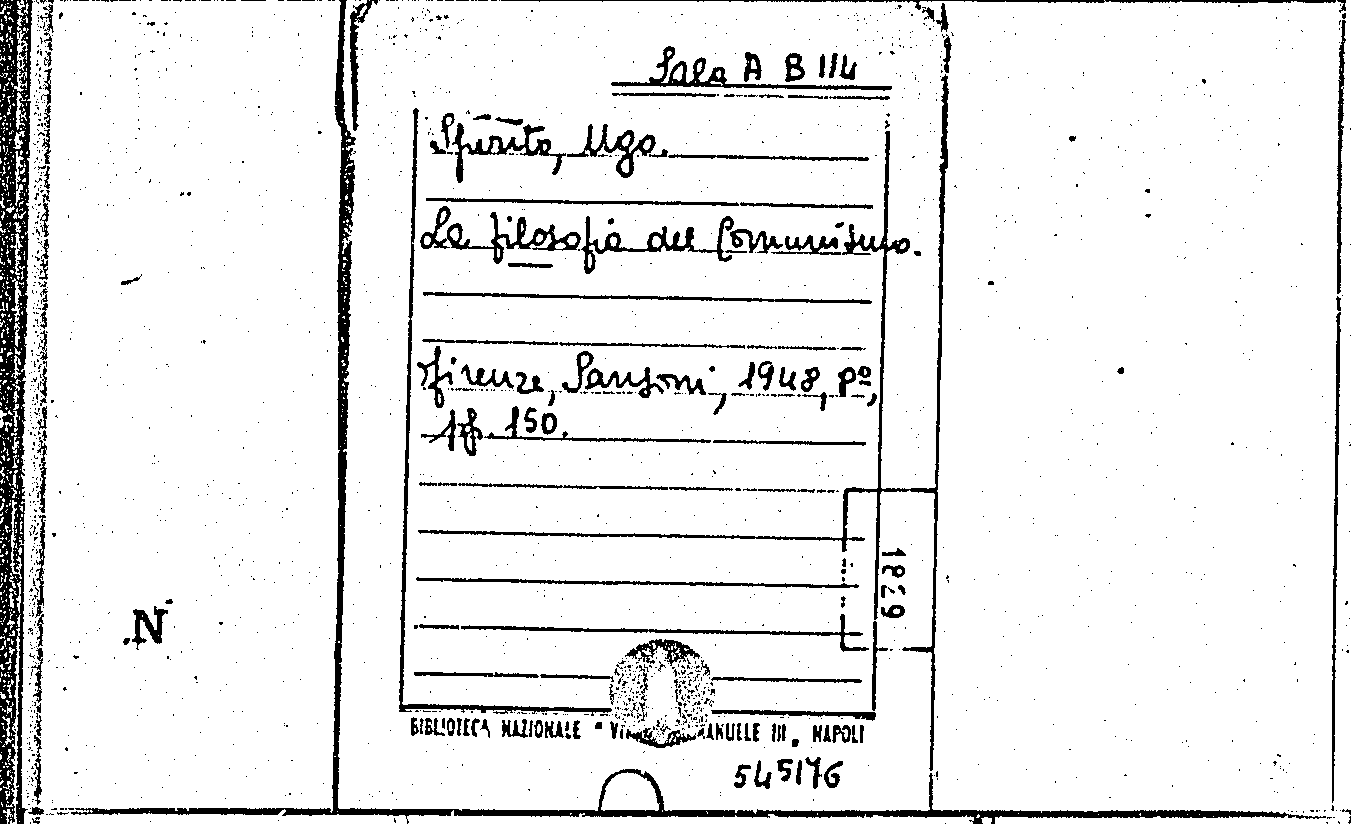 Sala A B 114
Spirito, Ugo.
La filosofia del Comunismo.
Firenze, Sansoni, 1948, Pº,
pp. 150.
1829
N
BIBLIOTECA NAZIONALE " VI ANUELE III „ NAPOLI
545176